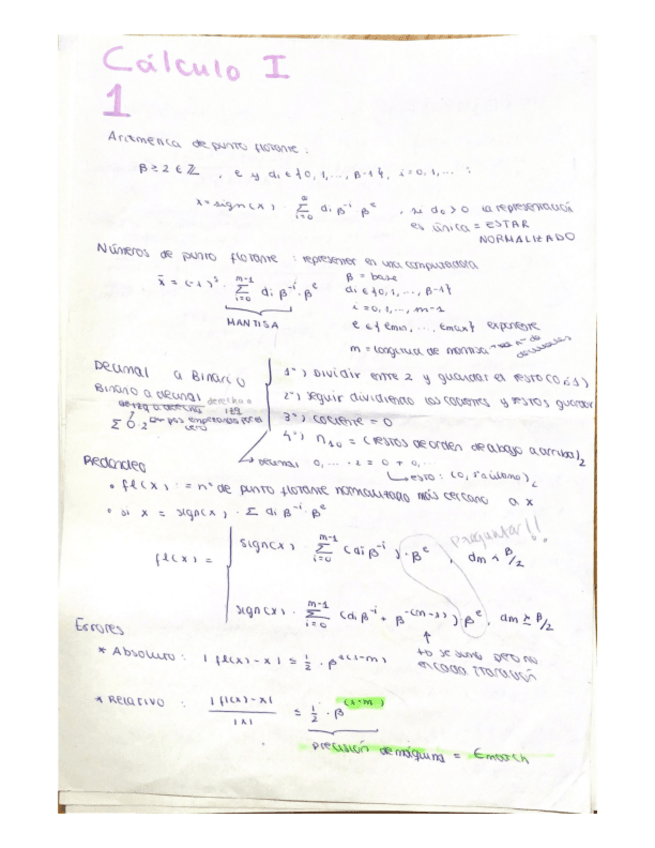 Cálculo I
1
Aritmética de punto flotante :
β ≥ 2 ∈ ℤ , e y di ∈ {0, 1, ..., β-1}, i = 0, 1, ... :
x = sign(x) · Σ_{i=0}^{∞} di β^{-i} β^e , si d0 > 0 la representación
es única = ESTAR
NORMALIZADO
Números de punto flotante : representar en una computadora
x̄ = (-1)^s · Σ_{i=0}^{m-1} di β^{-i} · β^e
MANTISA
β = base
di ∈ {0, 1, ..., β-1}
i = 0, 1, ..., m-1
e ∈ {emin, ..., emax} exponente
m = longitud de mantisa → nº de decimales
Decimal a Binario
Binario a decimal derecha a izq
Σ 0·2
1º) Dividir entre 2 y guardar el resto (0 ó 1)
2º) seguir dividiendo los cocientes y restos guardar
3º) cociente = 0
4º) n10 = (restos de orden de abajo a arriba)2
decimal 0, ... · 2 = 0 + 0, ...
esto : (0, 1º a último)2
Redondeo
• fl(x) := nº de punto flotante normalizado más cercano a x
• si x = sign(x) · Σ di β^{-i} β^e
fl(x) =
sign(x) · Σ_{i=0}^{m-1} (di β^{-i}) · β^e , dm < β/2
preguntar!!
sign(x) · Σ_{i=0}^{m-1} (di β^{-i} + β^{-(m-1)}) · β^e , dm ≥ β/2
to se suma pero no
en cada iteración
Errores
* Absoluto : |fl(x) - x| ≤ 1/2 · β^{e(1-m)}
* Relativo : |fl(x) - x| / |x| ≤ 1/2 · β^{(1-m)}
precisión de máquina = Ɛmach